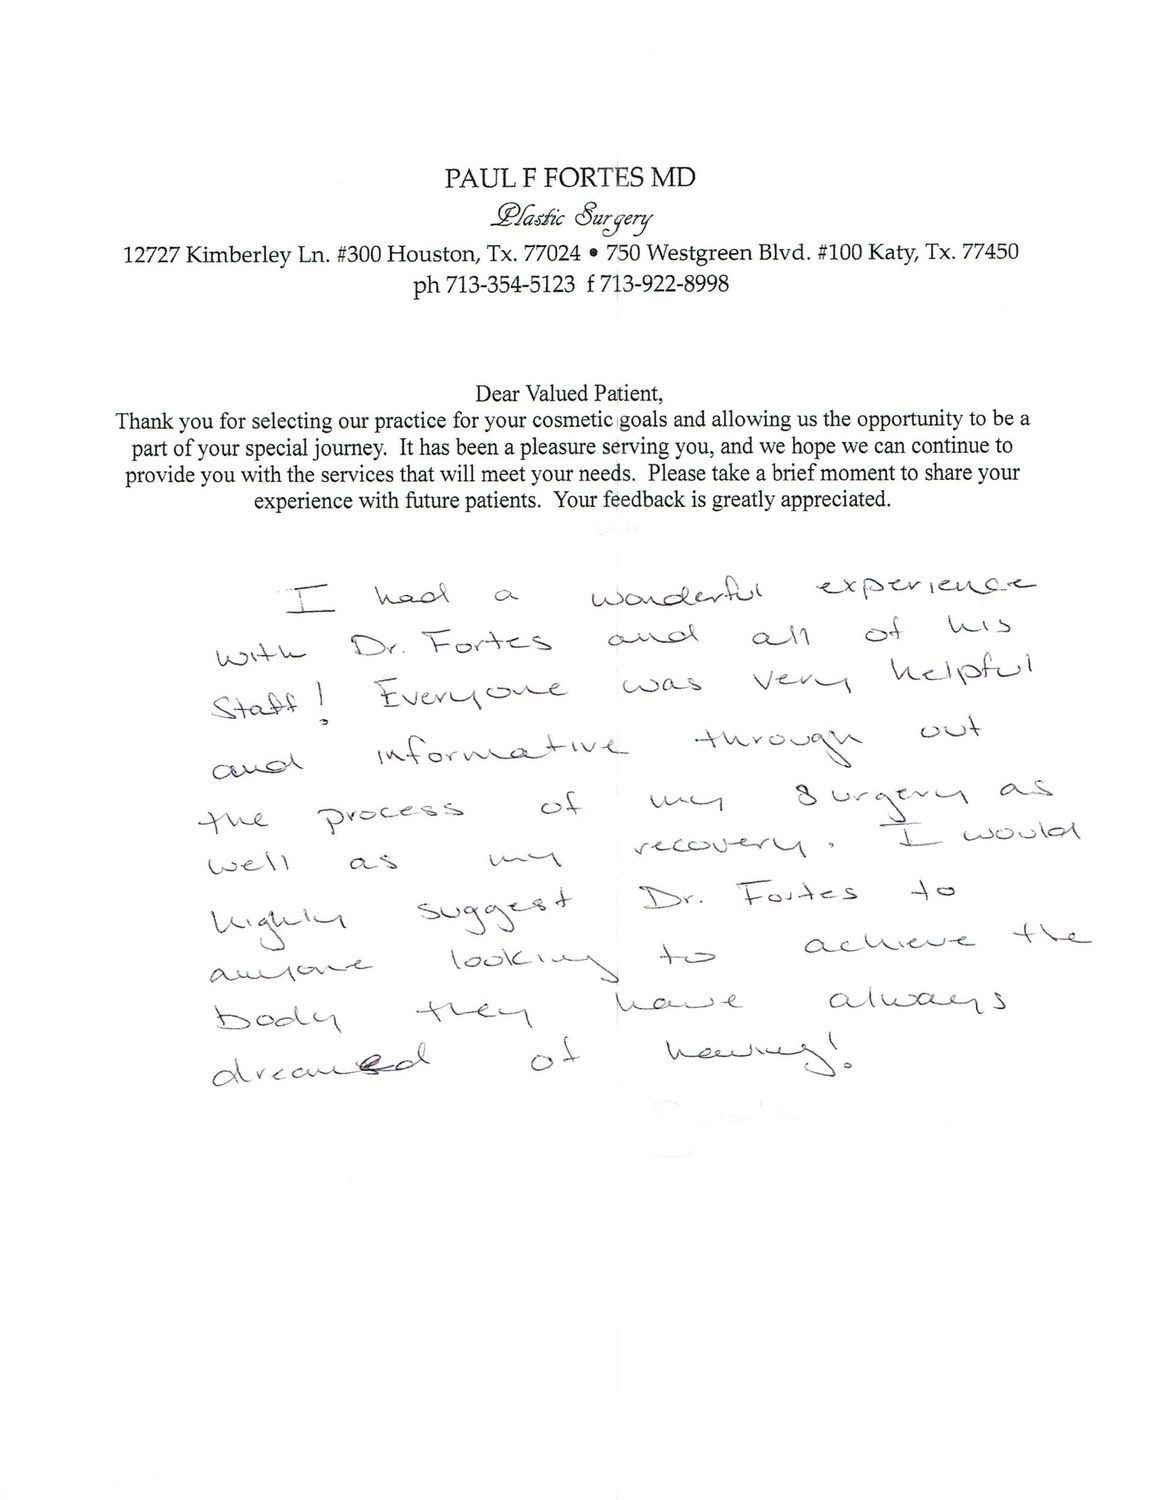 PAUL F FORTES MD
Plastic Surgery
12727 Kimberley Ln. #300 Houston, Tx. 77024 • 750 Westgreen Blvd. #100 Katy, Tx. 77450
ph 713-354-5123 f 713-922-8998
Dear Valued Patient,
Thank you for selecting our practice for your cosmetic goals and allowing us the opportunity to be a
part of your special journey. It has been a pleasure serving you, and we hope we can continue to
provide you with the services that will meet your needs. Please take a brief moment to share your
experience with future patients. Your feedback is greatly appreciated.
I had a wonderful experience
with Dr. Fortes and all of his
Staff! Everyone was very helpful
and informative through out
the process of my surgery as
well as my recovery. I would
highly suggest Dr. Fortes to
anyone looking to achieve the
body they have always
dreamed of having!